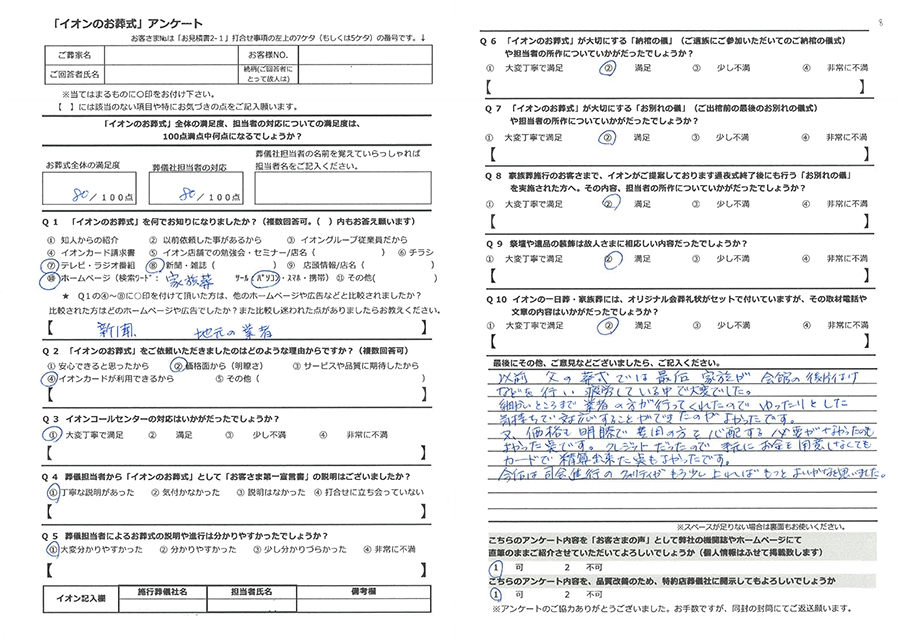 「イオンのお葬式」アンケート
お客さま№は「お見積書2-1」打合せ事項の左上の7ケタ（もしくは5ケタ）の番号です。↓
ご葬家名 お客様NO.
ご回答者氏名 続柄(ご回答者にとって故人は)
※当てはまるものに○印をお付け下さい。
【 】には該当のない項目や特にお気づきの点をご記入願います。
「イオンのお葬式」全体の満足度、担当者の対応についての満足度は、
100点満点中何点になるでしょうか？
お葬式全体の満足度 葬儀社担当者の対応 葬儀社担当者の名前を覚えていらっしゃれば
担当者名をご記入ください。
80/100点 80/100点
Q 1 「イオンのお葬式」を何でお知りになりましたか？（複数回答可。( ) 内もお答え願います）
① 知人からの紹介 ② 以前依頼した事があるから ③ イオングループ従業員だから
④ イオンカード請求書 ⑤ イオン店舗での勉強会・セミナー/店名 ( ) ⑥ チラシ
⑦ テレビ・ラジオ番組 ⑧ 新聞・雑誌 ( ) ⑨ 店頭情報/店名 ( )
⑩ ホームページ（検索ﾜｰﾄﾞ： 家族葬 ツール：パソコン・スマホ・携帯） ⑪ その他( )
★ Q１の④～⑪に○印を付けて頂いた方は、他のホームページや広告などと比較されましたか？
比較された方はどのホームページや広告でしたか？また比較し迷われた点がありましたらお教えください。
【 新聞 地元の業者 】
Q 2 「イオンのお葬式」をご依頼いただきましたのはどのような理由からですか？（複数回答可）
①安心できると思ったから ②価格面から（明瞭さ） ③サービスや品質に期待したから
④イオンカードが利用できるから ⑤その他 ( )
【 】
Q 3 イオンコールセンターの対応はいかがだったでしょうか？
① 大変丁寧で満足 ② 満足 ③ 少し不満 ④ 非常に不満
【 】
Q 4 葬儀担当者から「イオンのお葬式」として「お客さま第一宣言書」の説明はございましたか？
①丁寧な説明があった ②気付かなかった ③説明はなかった ④打合せに立ち会っていない
【 】
Q 5 葬儀担当者によるお葬式の説明や進行は分かりやすかったでしょうか？
①大変分かりやすかった ②分かりやすかった ③少し分かりづらかった ④非常に不満
【 】
イオン記入欄 施行葬儀社名 担当者氏名 備考欄
8
Q 6 「イオンのお葬式」が大切にする「納棺の儀」（ご遺族にご参加いただいてのご納棺の儀式）
や担当者の所作についていかがだったでしょうか？
① 大変丁寧で満足 ② 満足 ③ 少し不満 ④ 非常に不満
【 】
Q 7 「イオンのお葬式」が大切にする「お別れの儀」（ご出棺前の最後のお別れの儀式）
や担当者の所作についていかがだったでしょうか？
① 大変丁寧で満足 ② 満足 ③ 少し不満 ④ 非常に不満
【 】
Q 8 家族葬施行のお客さまで、イオンがご提案しております通夜式終了後にも行う「お別れの儀」
を実施された方へ。その内容、担当者の所作についていかがだったでしょうか？
① 大変丁寧で満足 ② 満足 ③ 少し不満 ④ 非常に不満
【 】
Q 9 祭壇や遺品の装飾は故人さまに相応しい内容だったでしょうか？
① 大変丁寧で満足 ② 満足 ③ 少し不満 ④ 非常に不満
【 】
Q 10 イオンの一日葬・家族葬には、オリジナル会葬礼状がセットで付いていますが、その取材電話や
文章の内容はいかがだったでしょうか？
① 大変丁寧で満足 ② 満足 ③ 少し不満 ④ 非常に不満
【 】
最後にその他、ご意見などございましたら、ご記入ください。
以前 父の葬式では最后 家族が 会館の後片付け
などを行い 疲労している中で大変でした。
細かいところまで業者の方が行ってくれたので ゆったりとした
気持ちで対応することができたのがよかったです。
又、価格も明瞭で費用の方を心配する必要がなかったのも
よかった点です。クレジットだったので 手元にお金を用意しなくても
カードで精算出来た点もよかったです。
今后は司会進行のクオリティがもう少し上がればもっとよいかなと思いました。
※スペースが足りない場合は裏面もお使いください。
こちらのアンケート内容を「お客さまの声」として弊社の機関誌やホームページにて
直筆のままご紹介させていただいてよろしいでしょうか（個人情報はふせて掲載致します）
1 可 2 不可
こちらのアンケート内容を、品質改善のため、特約店葬儀社に開示してもよろしいでしょうか
1 可 2 不可
※アンケートのご協力ありがとうございました。お手数ですが、同封の封筒にてご返送願います。